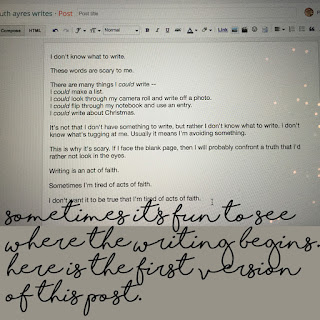 uth ayres writes · Post Post title
Compose HTML Normal Link
I don't know what to write.
These words are scary to me.
There are many things I could write --
I could make a list.
I could look through my camera roll and write off a photo.
I could flip through my notebook and use an entry.
I could write about Christmas.
It's not that I don't have something to write, but rather I don't know what to write. I don't
know what's tugging at me. Usually it means I'm avoiding something.
This is why it's scary. If I face the blank page, then I will probably confront a truth that I'd
rather not look in the eyes.
Writing is an act of faith.
Sometimes I'm tired of acts of faith.
I don't want it to be true that I'm tired of acts of faith.
sometimes it's fun to see
where the writing begins.
here is the first version
of this post.